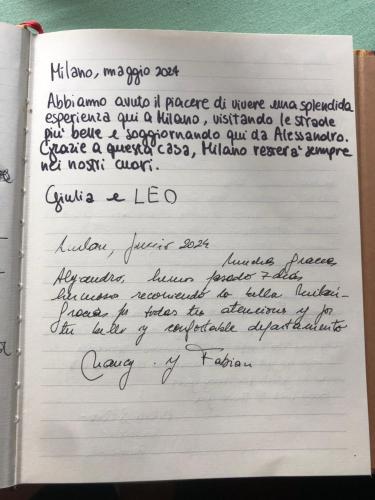 Milano, maggio 2024
Abbiamo avuto il piacere di vivere una splendida
esperienza qui a Milano, visitando le strade
piu' belle e soggiornando qui da Alessandro.
Grazie a questa casa, Milano resterà sempre
nei nostri cuori.
Giulia e LEO
Milan, Junio 2024
Muchas gracias
Alejandro, hemos pasado 7 días
hermosos recorriendo la bella Milán.
Gracias por todas tus atenciones y por
tu bello y confortable departamento
Nancy y Fabian